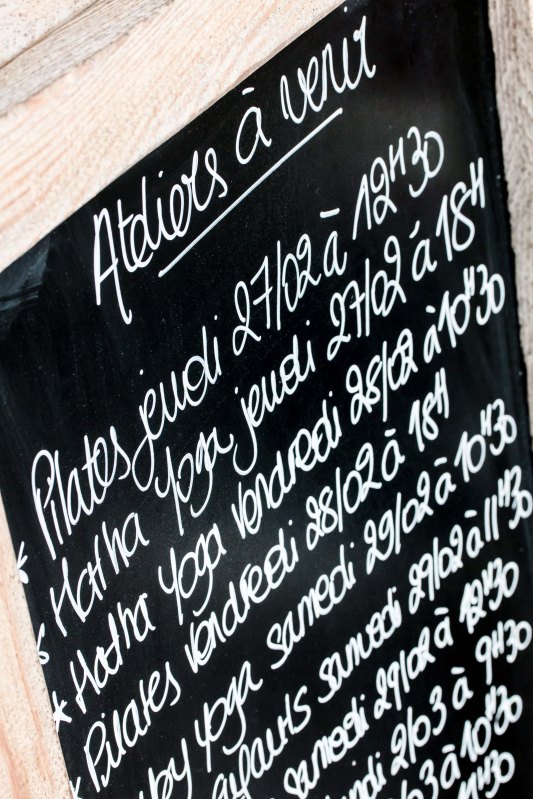 Ateliers à venir
* Pilates jeudi 27/02 à 12H30
* Hatha Yoga jeudi 27/02 à 18H
* Hatha Yoga vendredi 28/02 à 10H30
* Pilates vendredi 28/02 à 18H
Yoga samedi 29/02 à 10H30
samedi 29/02 à 11H30
samedi 29/02 à 12H30
2/03 à 9H30
à 10H30